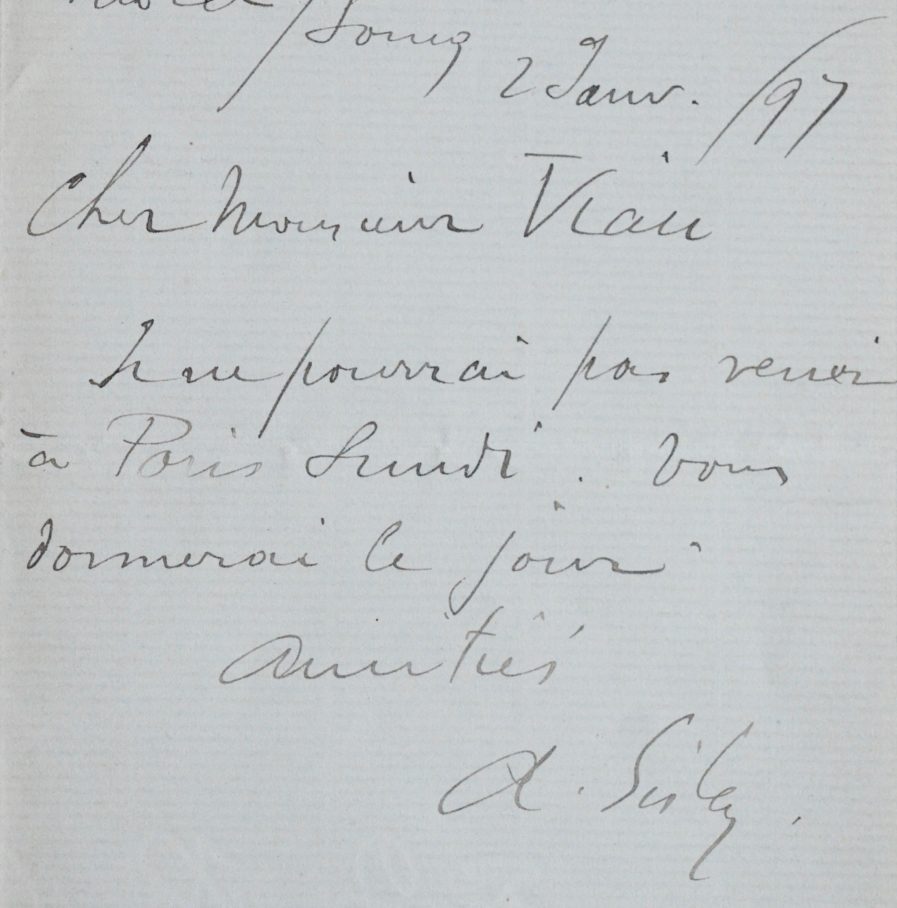 Loing 2 Janv. /97
Cher Monsieur Viau
Je ne pourrai pas venir
à Paris Lundi. Vous
donnerai le jour.
Amitiés
A. Sisley.